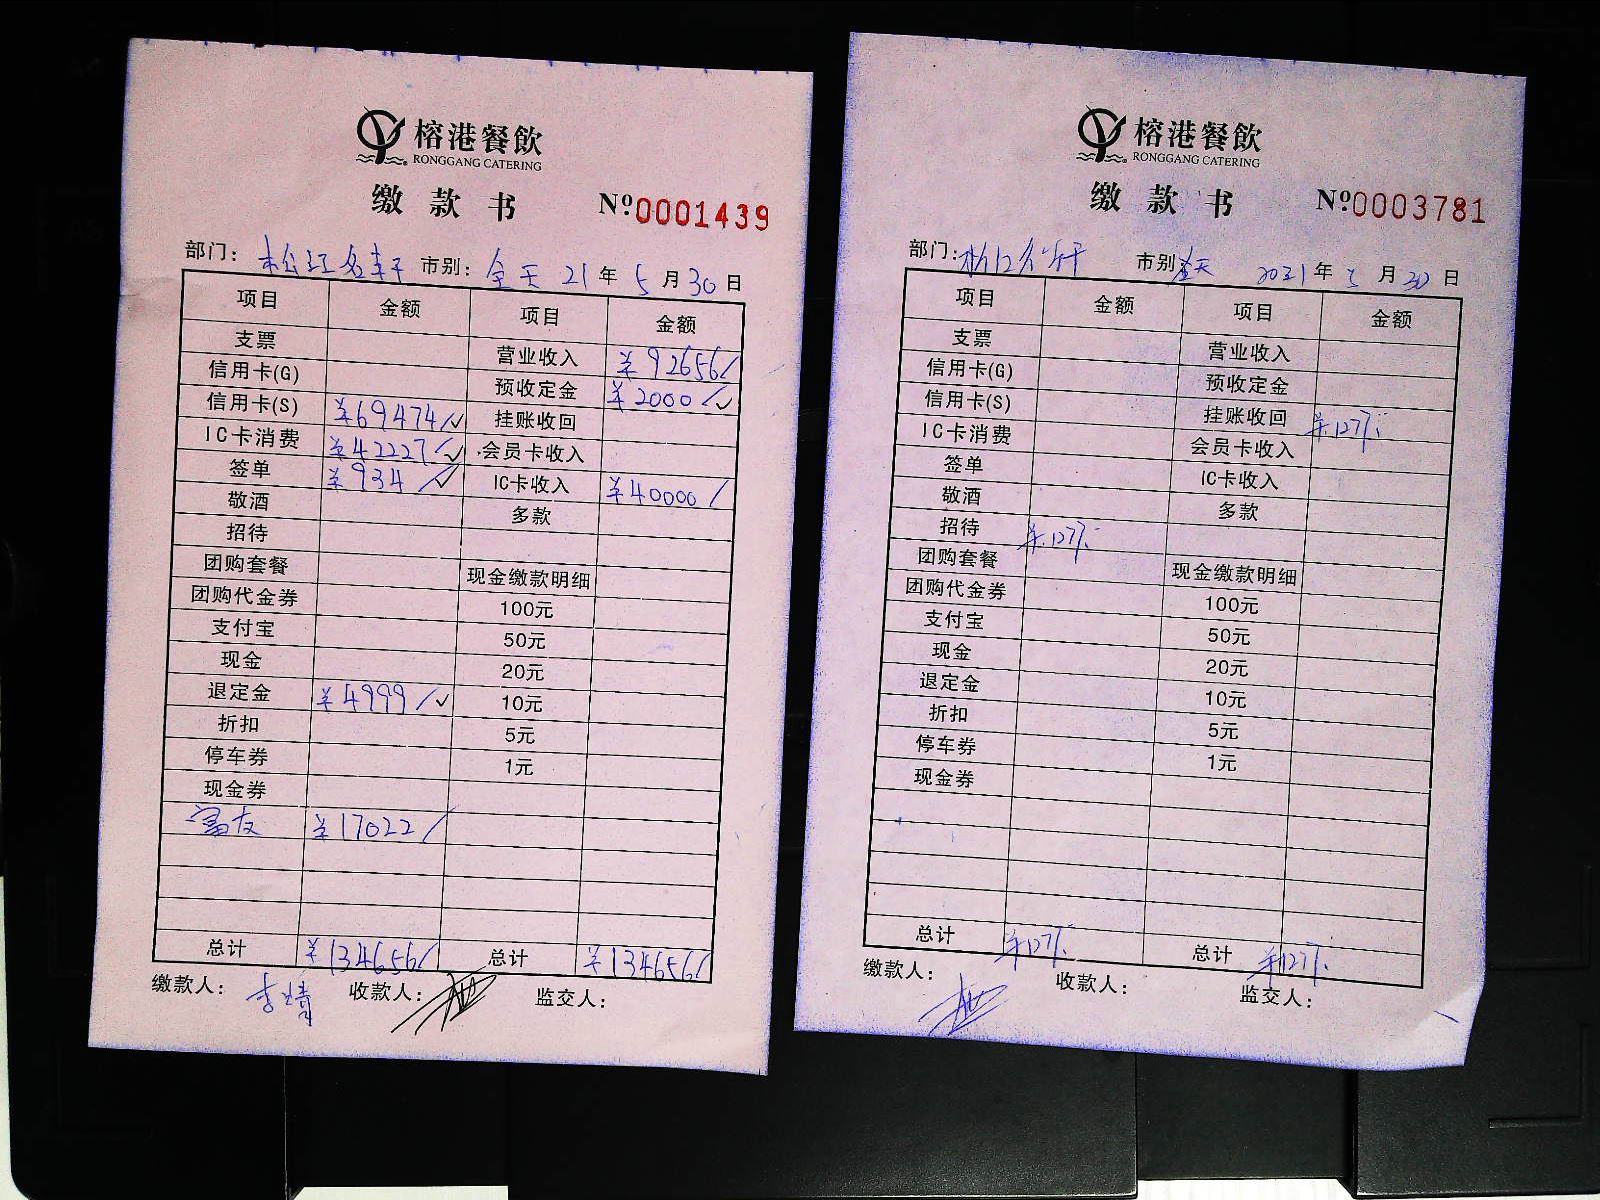 榕港餐飲
RONGGANG CATERING
缴款书 №0001439
部门: 松江名轩 市别: 全天 21年5月30日
项目 金额 项目 金额
支票 营业收入 ¥92656/
信用卡(G) 预收定金 ¥2000/✓
信用卡(S) ¥69474/✓ 挂账收回
IC卡消费 ¥42227/✓ 会员卡收入
签单 ¥934/✓ IC卡收入 ¥40000/
敬酒 多款
招待
团购套餐 现金缴款明细
团购代金券 100元
支付宝 50元
现金 20元
退定金 ¥4999/✓ 10元
折扣 5元
停车券 1元
现金券
富友 ¥17022/
总计 ¥134656/ 总计 ¥134656/
缴款人: 李婧 收款人: 监交人:
榕港餐飲
RONGGANG CATERING
缴款书 №0003781
部门: 松江名轩 市别: 全天 2021年5月30日
项目 金额 项目 金额
支票 营业收入
信用卡(G) 预收定金
信用卡(S) 挂账收回 ¥127/
IC卡消费 会员卡收入
签单 IC卡收入
敬酒 多款
招待 ¥127/
团购套餐 现金缴款明细
团购代金券 100元
支付宝 50元
现金 20元
退定金 10元
折扣 5元
停车券 1元
现金券
总计 ¥127/ 总计 ¥127/
缴款人: 收款人: 监交人: